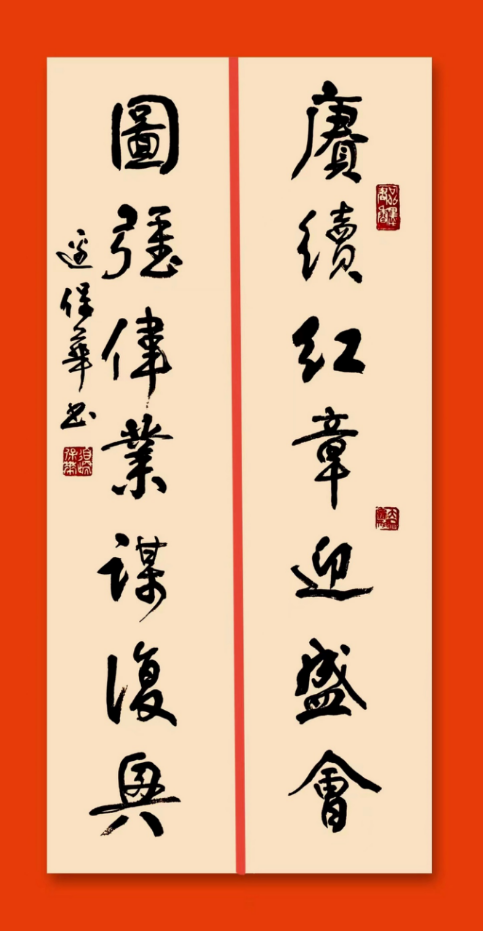 賡續红章迎盛會
圖强偉業謀復興
保華书